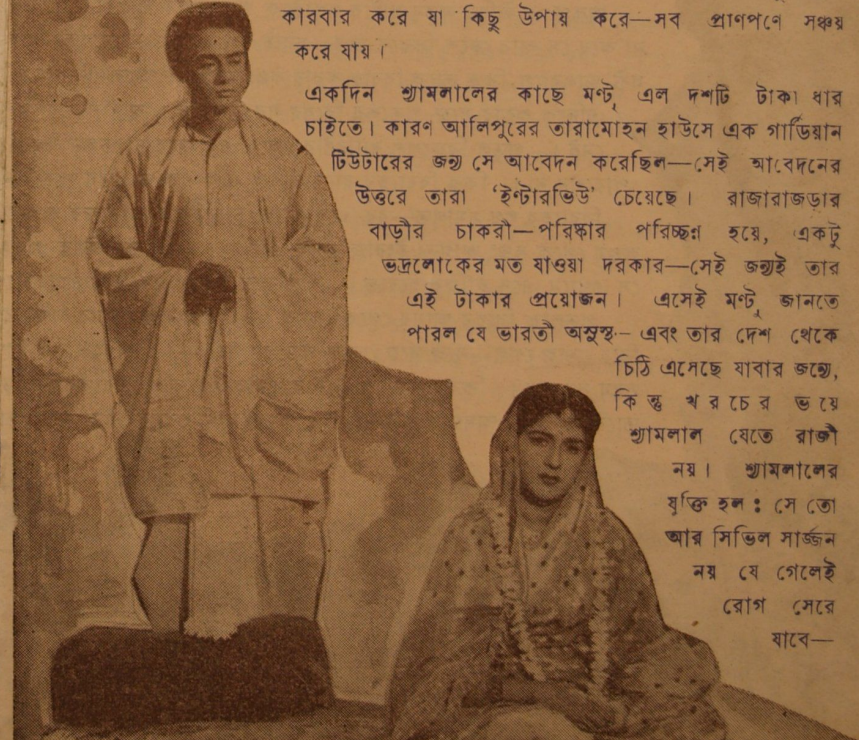 কারবার করে যা কিছু উপায় করে—সব প্রাণপণে সঞ্চয়
করে যায়।
একদিন শ্যামলালের কাছে মণ্টু এল দশটি টাকা ধার
চাইতে। কারণ আলিপুরের তারামোহন হাউসে এক গার্ডিয়ান
টিউটারের জন্য সে আবেদন করেছিল—সেই আবেদনের
উত্তরে তারা ‘ইণ্টারভিউ’ চেয়েছে। রাজারাজড়ার
বাড়ীর চাকরী—পরিষ্কার পরিচ্ছন্ন হয়ে, একটু
ভদ্রলোকের মত যাওয়া দরকার—সেই জন্যই তার
এই টাকার প্রয়োজন। এসেই মণ্টু জানতে
পারল যে ভারতী অসুস্থ—এবং তার দেশ থেকে
চিঠি এসেছে যাবার জন্যে,
কিন্তু খরচের ভয়ে
শ্যামলাল যেতে রাজী
নয়। শ্যামলালের
যুক্তি হল : সে তো
আর সিভিল সার্জ্জন
নয় যে গেলেই
রোগ সেরে
যাবে—